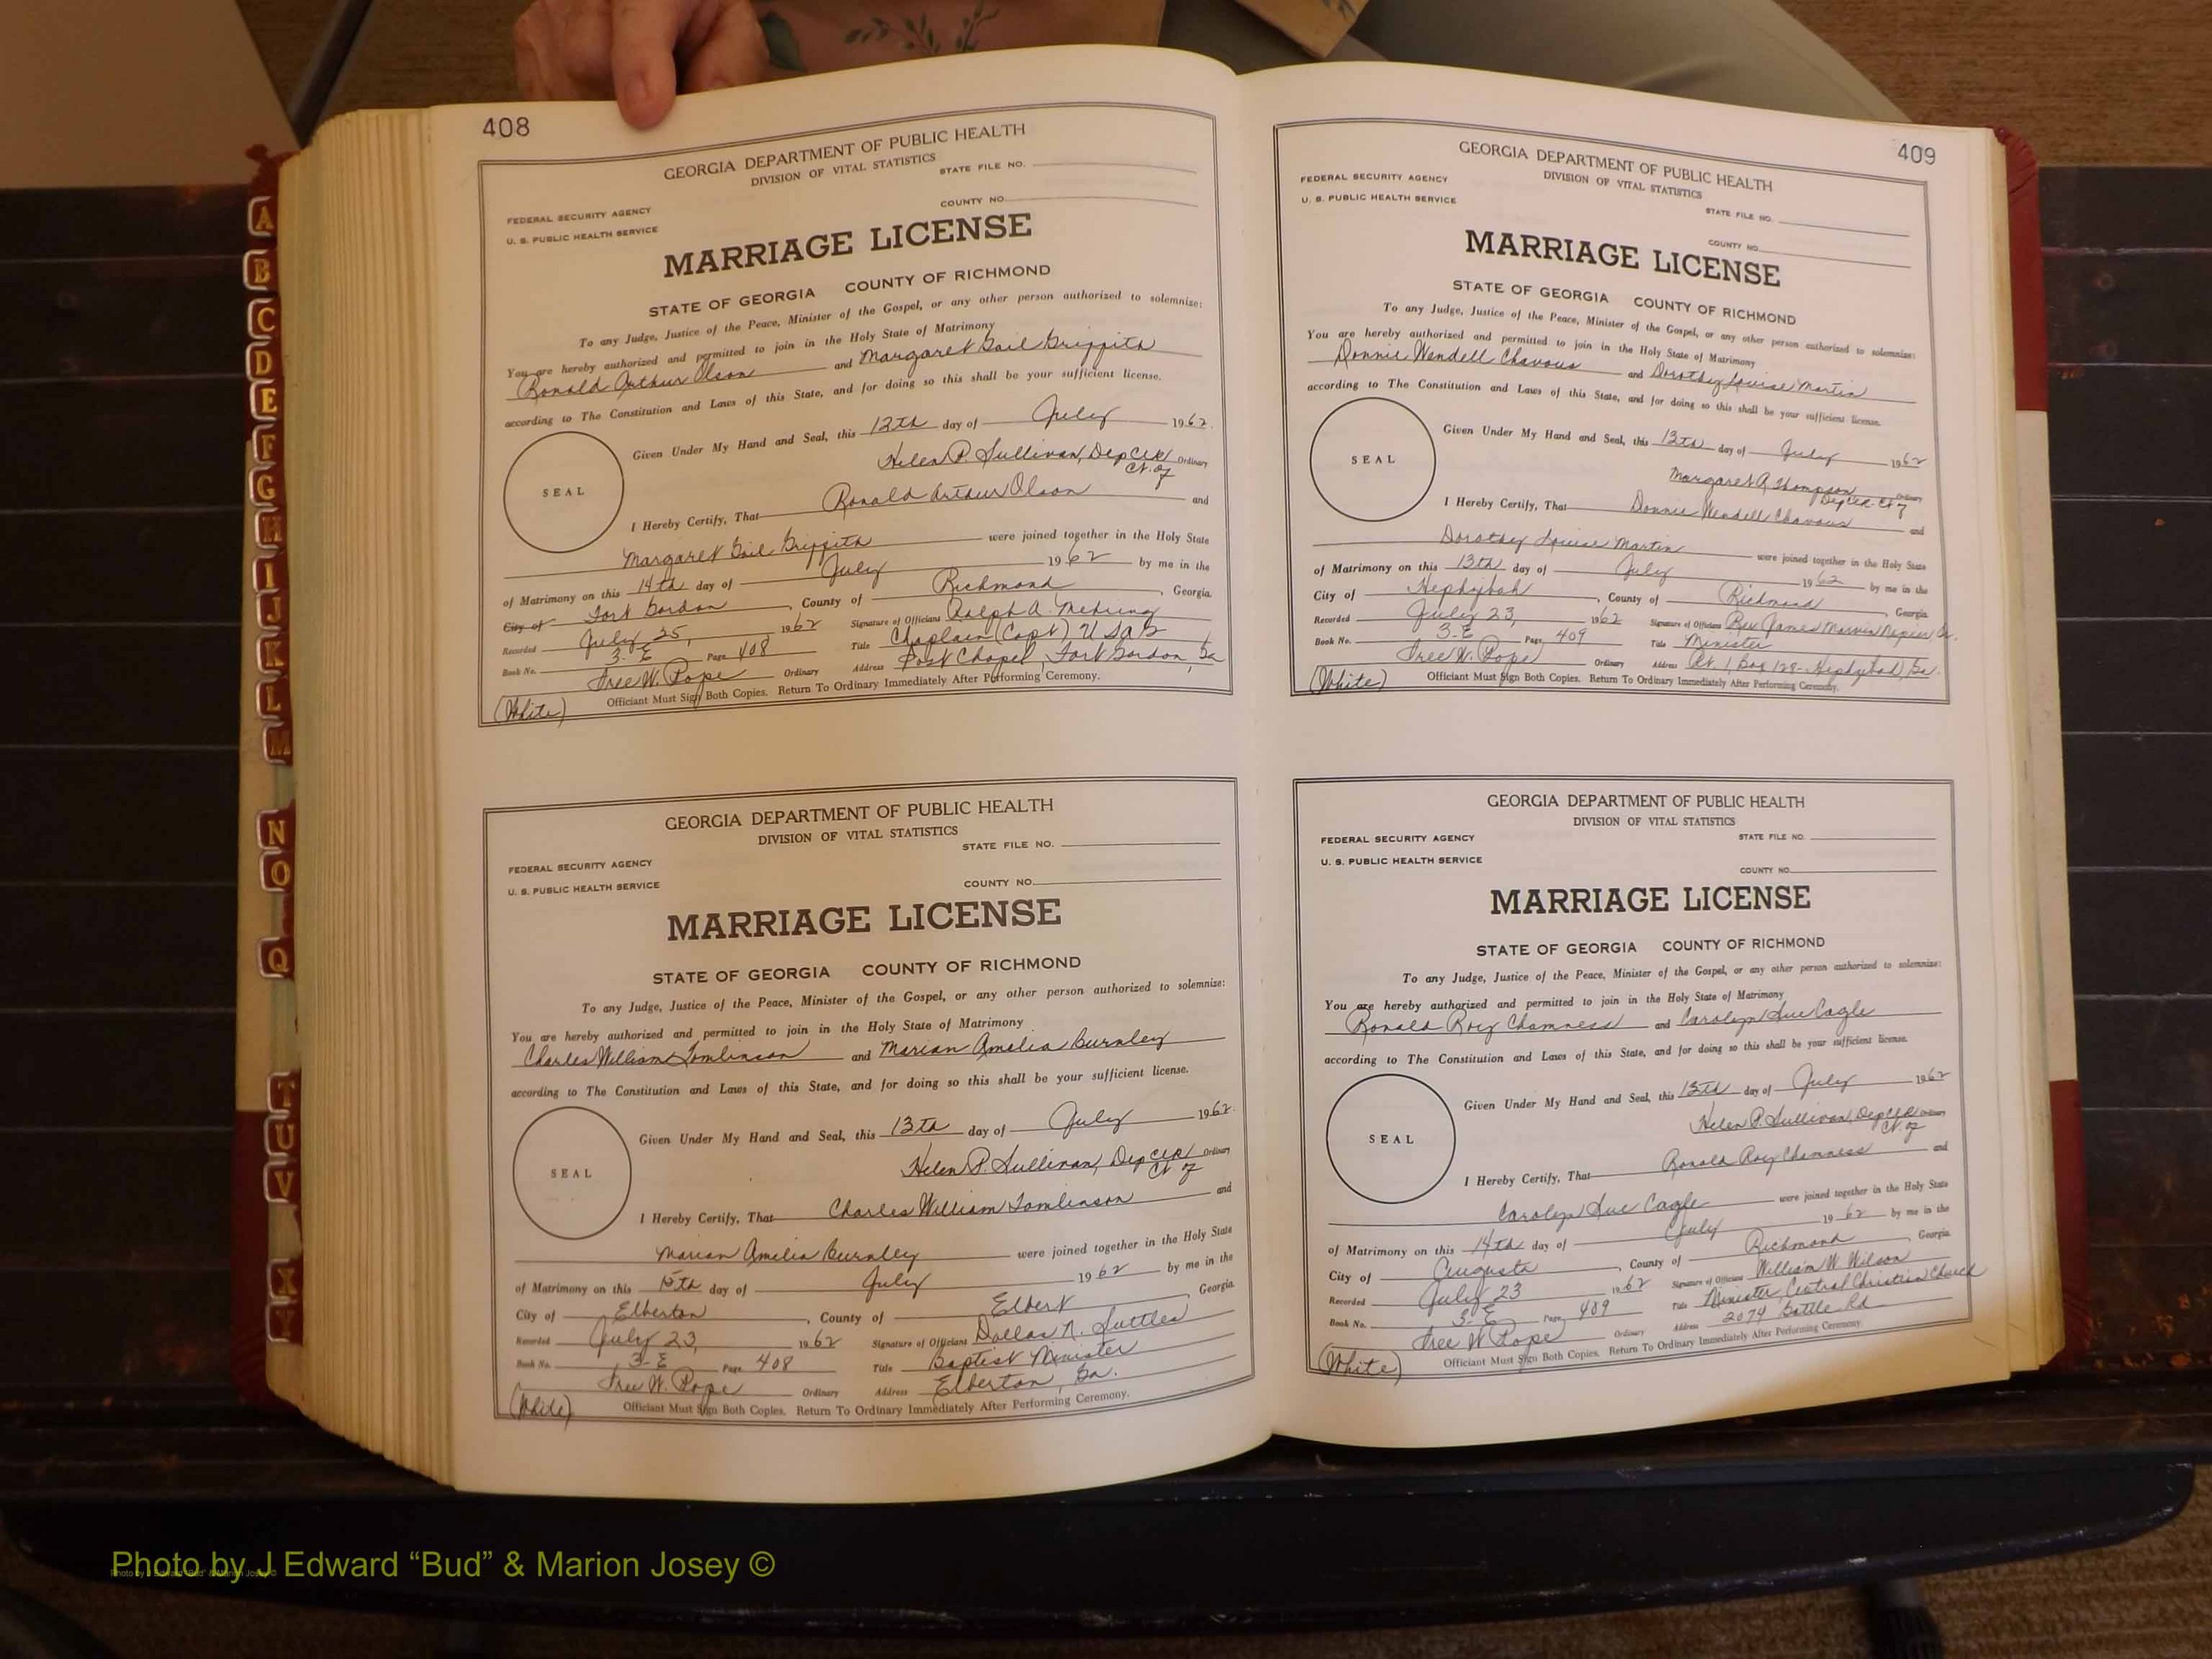 408
GEORGIA DEPARTMENT OF PUBLIC HEALTH
DIVISION OF VITAL STATISTICS
STATE FILE NO.
FEDERAL SECURITY AGENCY
COUNTY NO.
U. S. PUBLIC HEALTH SERVICE
MARRIAGE LICENSE
STATE OF GEORGIA COUNTY OF RICHMOND
To any Judge, Justice of the Peace, Minister of the Gospel, or any other person authorized to solemnize:
You are hereby authorized and permitted to join in the Holy State of Matrimony
Ronald Arthur Olson and Margaret Gail Griffith
according to The Constitution and Laws of this State, and for doing so this shall be your sufficient license.
Given Under My Hand and Seal, this 12th day of July 1962.
Helen P. Sullivan, Dep Clk Ordinary
Ct. of
SEAL
I Hereby Certify, That Ronald Arthur Olson and
Margaret Gail Griffith were joined together in the Holy State
of Matrimony on this 14th day of July 1962 by me in the
City of Fort Gordon, County of Richmond, Georgia.
Recorded July 25, 1962 Signature of Officiant Ralph A. Mehring
Book No. 3-E Page 408 Title Chaplain (Capt) USAR
Free W. Pope Ordinary Address Post Chapel, Fort Gordon, Ga
(White) Officiant Must Sign Both Copies. Return To Ordinary Immediately After Performing Ceremony.
GEORGIA DEPARTMENT OF PUBLIC HEALTH
DIVISION OF VITAL STATISTICS
STATE FILE NO.
FEDERAL SECURITY AGENCY
U. S. PUBLIC HEALTH SERVICE
COUNTY NO.
MARRIAGE LICENSE
STATE OF GEORGIA COUNTY OF RICHMOND
To any Judge, Justice of the Peace, Minister of the Gospel, or any other person authorized to solemnize:
You are hereby authorized and permitted to join in the Holy State of Matrimony
Charles William Tomlinson and Marian Amelia Burnley
according to The Constitution and Laws of this State, and for doing so this shall be your sufficient license.
Given Under My Hand and Seal, this 13th day of July 1962.
Helen P. Sullivan, Dep Clk Ordinary
Ct of
SEAL
I Hereby Certify, That Charles William Tomlinson and
Marian Amelia Burnley were joined together in the Holy State
of Matrimony on this 15th day of July 1962 by me in the
City of Elberton, County of Elbert Georgia.
Recorded July 23, 1962 Signature of Officiant Dallas N. Suttles
Book No. 3-E Page 408 Title Baptist Minister
Free W. Pope Ordinary Address Elberton, Ga.
(White) Officiant Must Sign Both Copies. Return To Ordinary Immediately After Performing Ceremony.
409
GEORGIA DEPARTMENT OF PUBLIC HEALTH
DIVISION OF VITAL STATISTICS
FEDERAL SECURITY AGENCY
U. S. PUBLIC HEALTH SERVICE
STATE FILE NO.
COUNTY NO.
MARRIAGE LICENSE
STATE OF GEORGIA COUNTY OF RICHMOND
To any Judge, Justice of the Peace, Minister of the Gospel, or any other person authorized to solemnize:
You are hereby authorized and permitted to join in the Holy State of Matrimony
Donnie Wendell Chavous and Dorothy Louise Martin
according to The Constitution and Laws of this State, and for doing so this shall be your sufficient license.
Given Under My Hand and Seal, this 13th day of July 1962
Margaret A Thompson Ordinary
Dep Clk Ct of
SEAL
I Hereby Certify, That Donnie Wendell Chavous and
Dorothy Louise Martin were joined together in the Holy State
of Matrimony on this 13th day of July 1962 by me in the
City of Hephzibah, County of Richmond, Georgia.
Recorded July 23, 1962 Signature of Officiant Rev James Marvin Napier Jr.
Book No. 3-E Page 409 Title Minister
Free W. Pope Ordinary Address Rt. 1 Box 128- Hephzibah, Ga.
(White) Officiant Must Sign Both Copies. Return To Ordinary Immediately After Performing Ceremony.
GEORGIA DEPARTMENT OF PUBLIC HEALTH
DIVISION OF VITAL STATISTICS
FEDERAL SECURITY AGENCY
STATE FILE NO.
U. S. PUBLIC HEALTH SERVICE
COUNTY NO.
MARRIAGE LICENSE
STATE OF GEORGIA COUNTY OF RICHMOND
To any Judge, Justice of the Peace, Minister of the Gospel, or any other person authorized to solemnize:
You are hereby authorized and permitted to join in the Holy State of Matrimony
Ronald Roy Chamness and Carolyn Sue Cagle
according to The Constitution and Laws of this State, and for doing so this shall be your sufficient license.
Given Under My Hand and Seal, this 13th day of July 1962
Helen P. Sullivan, Dep Clk Ordinary
Ct. of
SEAL
I Hereby Certify, That Ronald Roy Chamness and
Carolyn Sue Cagle were joined together in the Holy State
of Matrimony on this 14th day of July 1962 by me in the
City of Augusta, County of Richmond, Georgia
Recorded July 23 1962 Signature of Officiant William W. Wilson
Book No. 3-E Page 409 Title Minister, Central Christian Church
Free W Pope Ordinary Address 2074 Battle Rd
(White) Officiant Must Sign Both Copies. Return To Ordinary Immediately After Performing Ceremony.
A
B
C
D
E
F
G
H
I
J
K
L
M
N
O
Q
T
U
V
X
Y
Photo by J Edward “Bud” & Marion Josey ©
Photo by J Edward "Bud" & Marion Josey ©